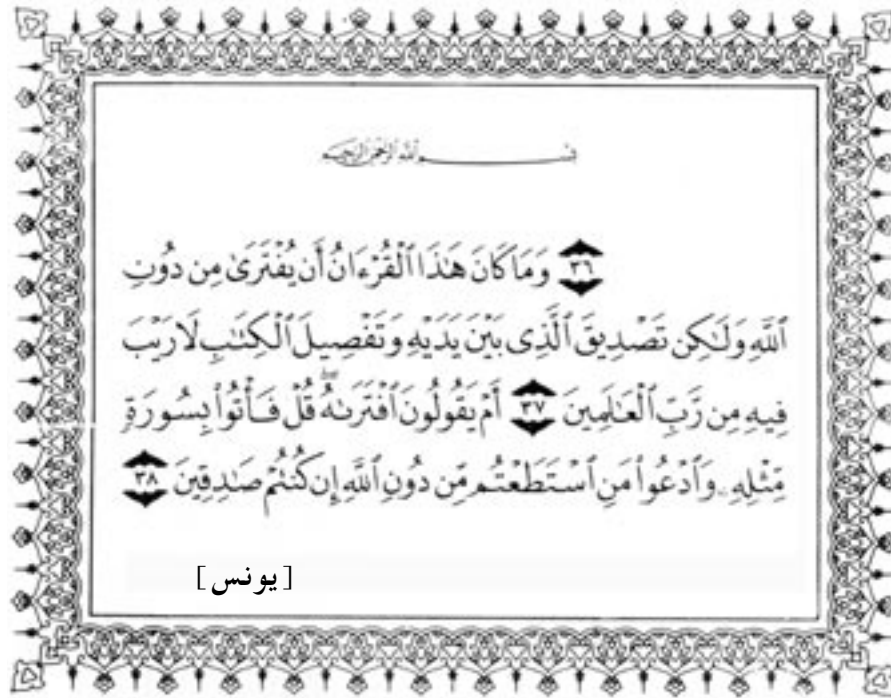 بسم الله الرحمن الرحيم
٣٦ وَمَا كَانَ هَٰذَا ٱلْقُرْءَانُ أَن يُفْتَرَىٰ مِن دُونِ
ٱللَّهِ وَلَٰكِن تَصْدِيقَ ٱلَّذِى بَيْنَ يَدَيْهِ وَتَفْصِيلَ ٱلْكِتَٰبِ لَا رَيْبَ
فِيهِ مِن رَّبِّ ٱلْعَٰلَمِينَ ٣٧ أَمْ يَقُولُونَ ٱفْتَرَىٰهُ ۖ قُلْ فَأْتُوا۟ بِسُورَةٍ
مِّثْلِهِۦ وَٱدْعُوا۟ مَنِ ٱسْتَطَعْتُم مِّن دُونِ ٱللَّهِ إِن كُنتُمْ صَٰدِقِينَ ٣٨
[يونس]